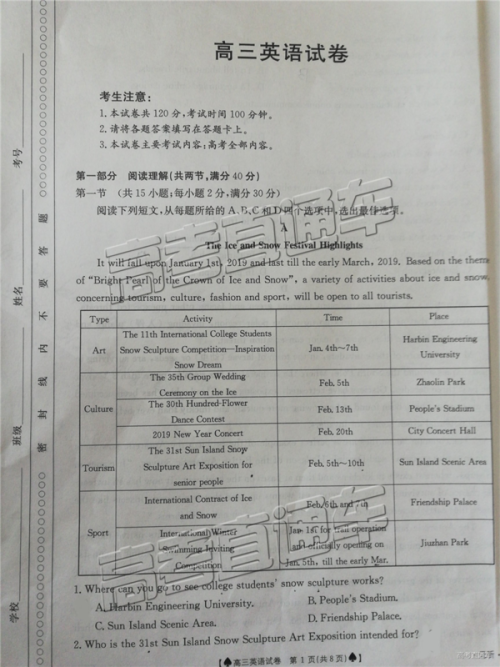 高三英语试卷
考生注意:
1.本试卷共120分,考试时间100分钟。
2.请将各题答案填写在答题卡上。
3.本试卷主要考试内容:高考全部内容。
第一部分 阅读理解(共两节,满分40分)
第一节 (共15小题;每小题2分,满分30分)
阅读下列短文,从每题所给的A、B、C和D四个选项中,选出最佳选项。
A
The Ice and Snow Festival Highlights
It will fall upon January 1st, 2019 and last till the early March, 2019. Based on the theme
of “Bright Pearl of the Crown of Ice and Snow”, a variety of activities about ice and snow
concerning tourism, culture, fashion and sport, will be open to all tourists.
Type Activity Time Place
Art
The 11th International College Students
Snow Sculpture Competition—Inspiration
Snow Dream
Jan. 4th~7th
Harbin Engineering
University
Culture
The 35th Group Wedding
Ceremony on the Ice
Feb. 5th
Zhaolin Park
The 30th Hundred-Flower
Dance Contest
Feb. 13th
People's Stadium
2019 New Year Concert
Feb. 20th
City Concert Hall
Tourism
The 31st Sun Island Snow
Sculpture Art Exposition for
senior people
Feb. 5th~10th
Sun Island Scenic Area
Sport
International Contract of Ice
and Snow
Feb. 6th and 7th
Friendship Palace
International Winter
Swimming Inviting
Competition
Jan. 1st for trail operation
and officially opening on
Jan. 5th, till the early Mar.
Jiuzhan Park
1. Where can you go to see college students' snow sculpture works?
A. Harbin Engineering University.
B. People's Stadium.
C. Sun Island Scenic Area.
D. Friendship Palace.
2. Who is the 31st Sun Island Snow Sculpture Art Exposition intended for?
【♠高三英语试卷 第1页(共8页)♠】
学校
班级
姓名
考号
密封线内不要答题
高考直通车
高考直通车